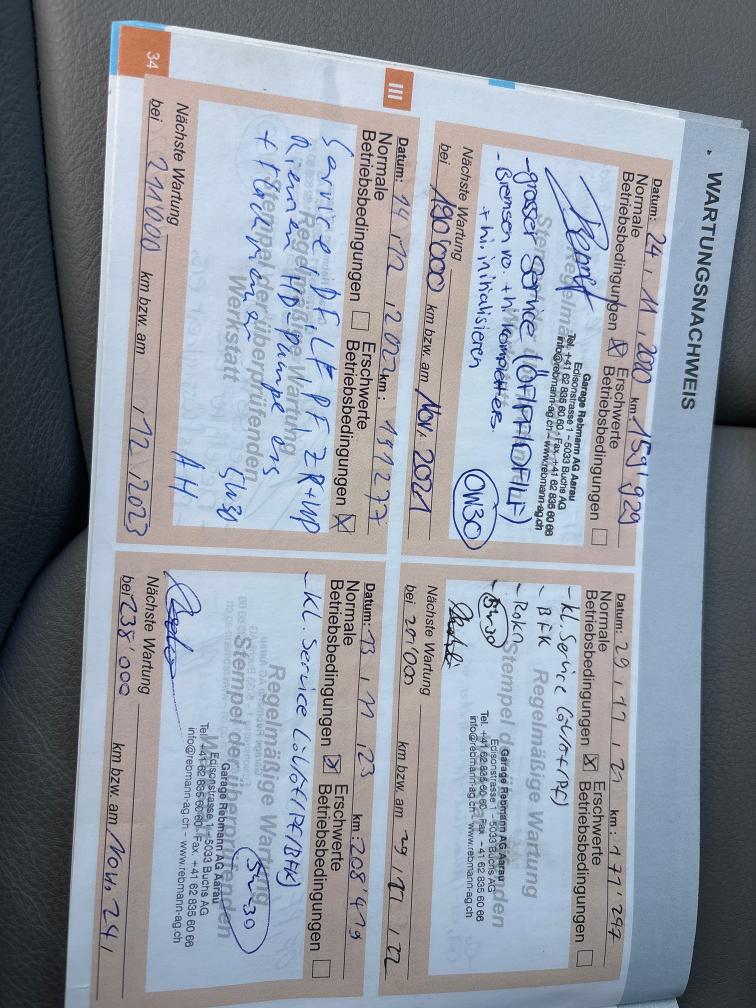 WARTUNGSNACHWEIS
Datum: 24 , 11 , 2020 km: 159'929
Normale Betriebsbedingungen ☒ Erschwerte Betriebsbedingungen ☐
Garage Rebmann AG Aarau
Edisonstrasse 1 – 5033 Buchs AG
Tel. +41 62 835 60 60 · Fax. +41 62 835 60 66
info@rebmann-ag.ch - www.rebmann-ag.ch
- grosser Service (ÖF/PF/IF/LF)
- Bremsen vo. + hi komplett ers.
+ hi. initialisieren
0W30
Nächste Wartung
bei 190'000 km bzw. am Nov. 2021
Datum: 29 , 11 , 21 km: 171'297
Normale Betriebsbedingungen ☒ Erschwerte Betriebsbedingungen ☐
Regelmäßige Wartung
- Kl. Service
- BFK
5W30
Garage Rebmann AG Aarau
Edisonstrasse 1 - 5033 Buchs AG
Tel. +41 62 835 60 60 · Fax +41 62 835 60 66
info@rebmann-ag.ch - www.rebmann-ag.ch
Nächste Wartung
bei 201'000 km bzw. am 29 , 11 , 22
III
Datum: 14 , 12 , 2022 km: 191277
Normale Betriebsbedingungen ☐ Erschwerte Betriebsbedingungen ☒
Regelmäßige Wartung
Stempel der überprüfenden Werkstatt
Service ÖF, LF PF ZR+WP
Riemen HD-Pumpe ers
+ Flachriemen
5W30
AH
Nächste Wartung
bei 211000 km bzw. am , 12 , 2023
Datum: 13 , 11 , 23 km: 208'419
Normale Betriebsbedingungen ☒ Erschwerte Betriebsbedingungen ☐
Regelmäßige Wartung
- Kl. Service
5W-30
Garage Rebmann AG Aarau
Edisonstrasse 1 - 5033 Buchs AG
Tel. +41 62 835 60 60 · Fax. +41 62 835 60 66
info@rebmann-ag.ch - www.rebmann-ag.ch
Nächste Wartung
bei 238'000 km bzw. am Nov. 24 ,
34